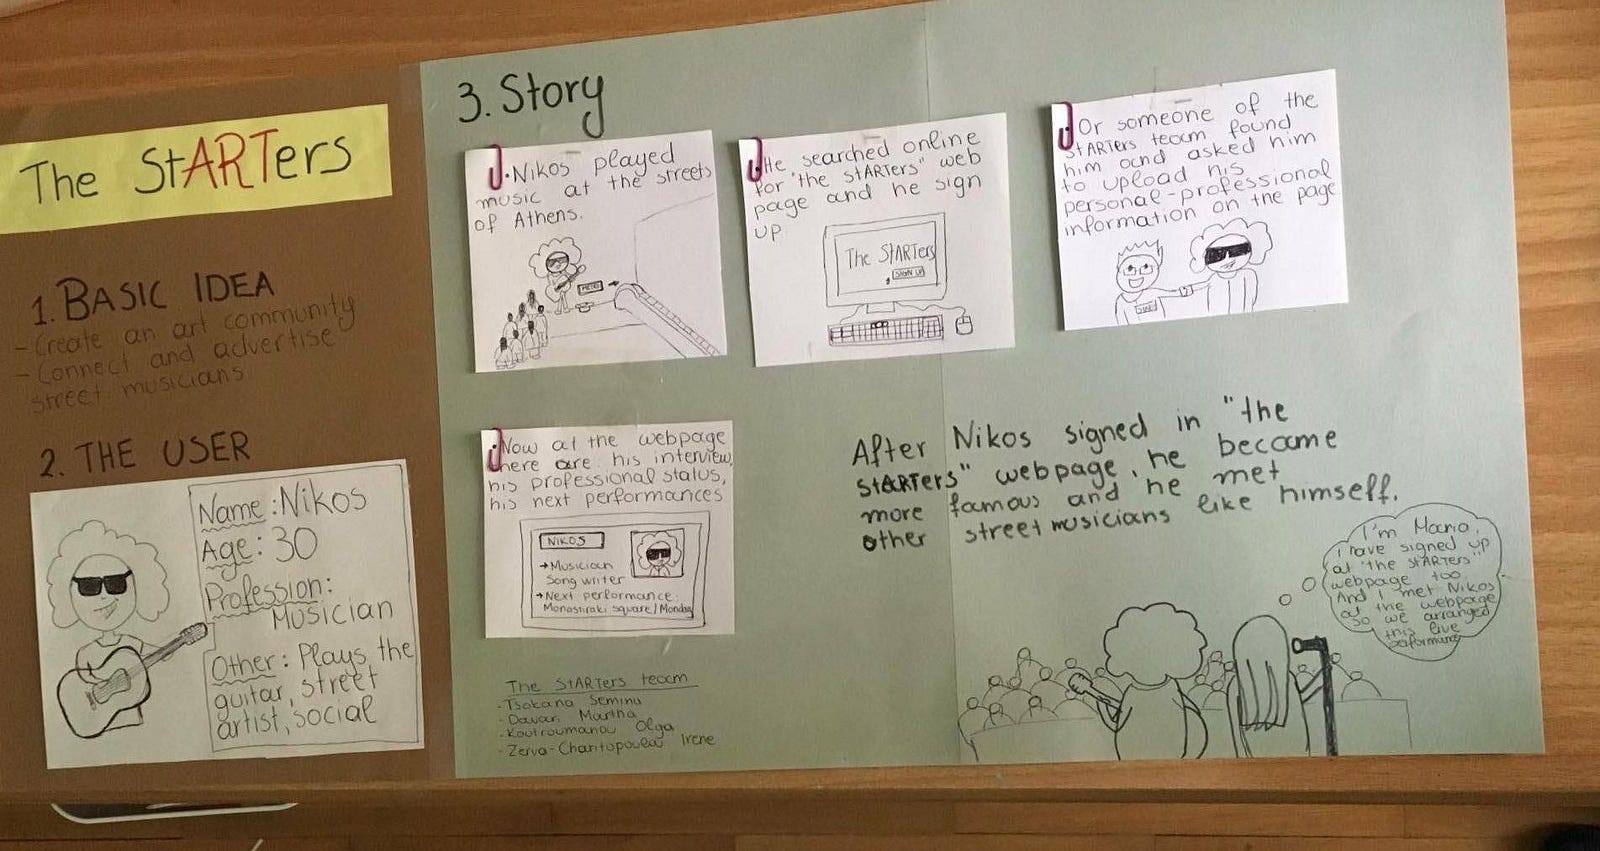 The StARTers
1. BASIC IDEA
- Create an art community
- Connect and advertise
street musicians
2. THE USER
Name: Nikos
Age: 30
Profession:
Musician
Other: Plays the
guitar, street
artist, social
3. Story
• Nikos played
music at the streets
of Athens.
METRO
• He searched online
for "the stARTers" web
page and he sign
up
The StARTers
SIGN UP
• Or someone of the
stARTers team found
him and asked him
to upload his
personal-professional
information on the page
• Now at the webpage
there are his interview,
his professional status,
his next performances
NIKOS
→ Musician
Song writer
→ Next performance:
Monastiraki square/Monday
After Nikos signed in "the
stARTers" webpage, he became
more famous and he met
other street musicians like himself.
I'm Maria,
I have signed up
at "the stARTers"
webpage too.
And I met Nikos
at the webpage
so we arranged
this live
performance
The StARTers team
- Tsokana Semina
- Davari Martha
- Koutroumanou Olga
- Zerva-Chantopoulou Irene